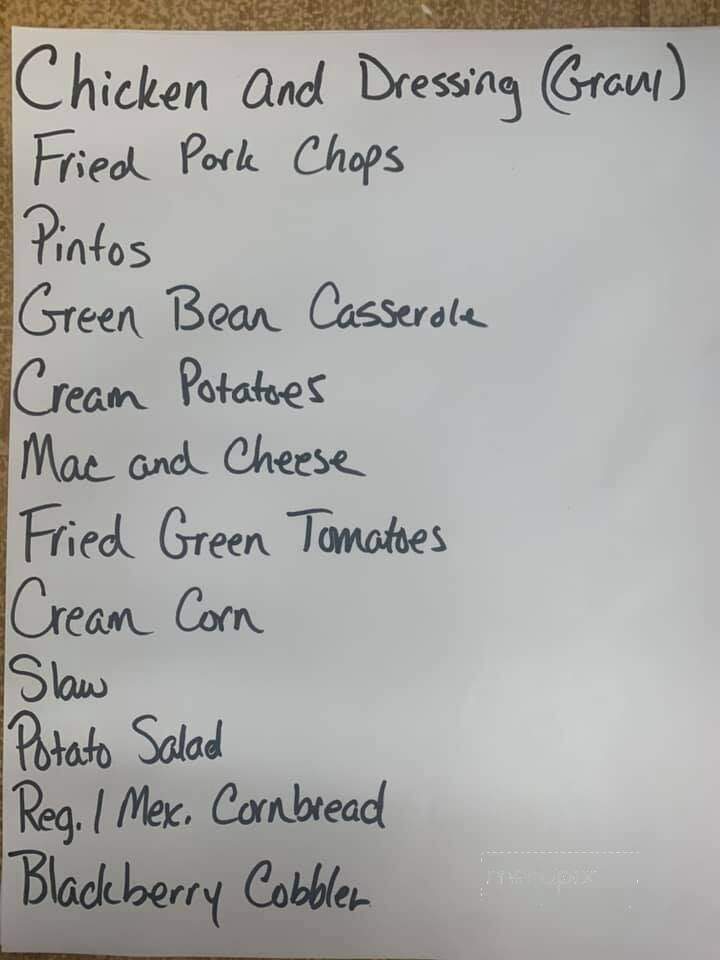 Chicken and Dressing (Gravy)
Fried Pork Chops
Pintos
Green Bean Casserole
Cream Potatoes
Mac and Cheese
Fried Green Tomatoes
Cream Corn
Slaw
Potato Salad
Reg. / Mex. Cornbread
Blackberry Cobbler
menupix